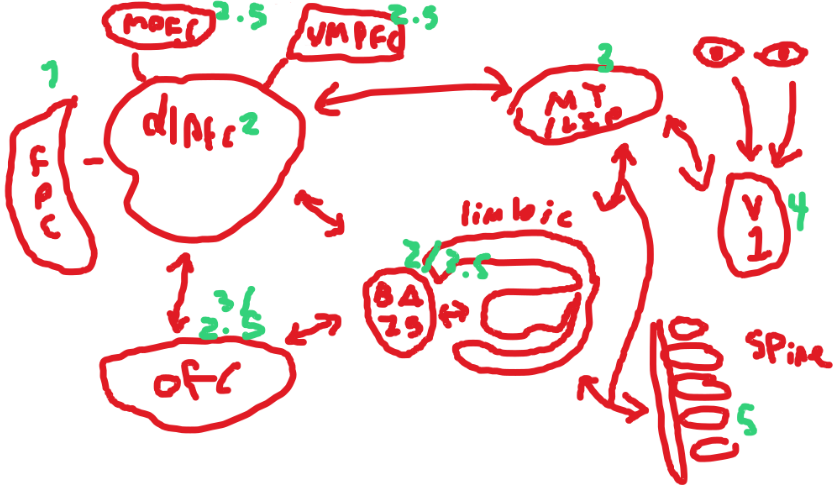 MOFC 2.5
VMPFC 2.5
1
FPC
dlPFC 2
3
MT
/LIP
V
1
4
limbic
2/2.5
BA
25
3/
2.5
OFC
Spine
5